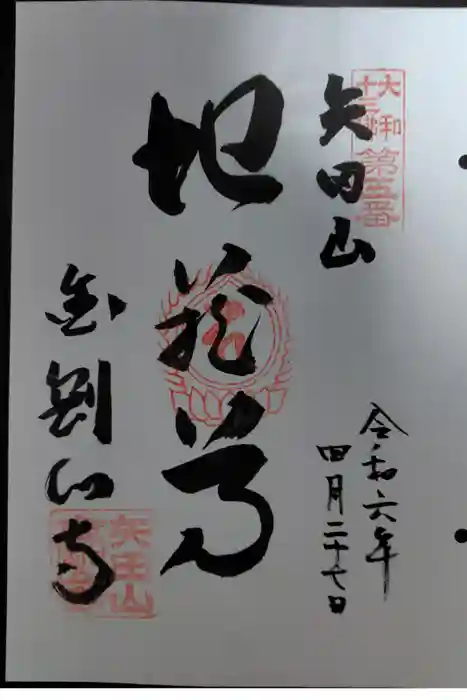 大和
十三佛
第五番
矢田山
令和六年
四月二十七日
地蔵尊
金剛山寺
矢田山